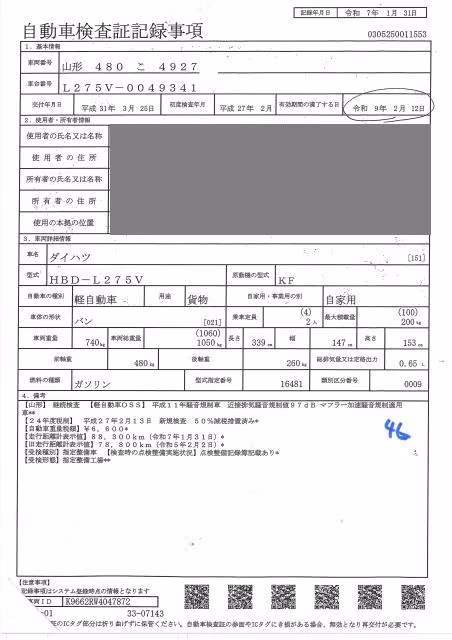 記録年月日 令和 7年 1月 31日
自動車検査証記録事項
0305250011553
1．基本情報
車両番号 山形 480 こ 4927
車台番号 L275V-0049341
交付年月日 平成 31年 3月 25日 初度検査年月 平成 27年 2月 有効期間の満了する日 令和 9年 2月 12日
2．使用者・所有者情報
使用者の氏名又は名称
使用者の住所
所有者の氏名又は名称
所有者の住所
使用の本拠の位置
3．車両詳細情報
車名 ダイハツ [151]
型式 HBD-L275V 原動機の型式 KF
自動車の種別 軽自動車 用途 貨物 自家用・事業用の別 自家用
車体の形状 バン [021] 乗車定員 (4) 2人 最大積載量 (100) 200kg
車両重量 740kg 車両総重量 (1060) 1050kg 長さ 339cm 幅 147cm 高さ 153cm
前軸重 480kg 後軸重 260kg 総排気量又は定格出力 0.65L
燃料の種類 ガソリン 型式指定番号 16481 類別区分番号 0009
4．備考
【山形】 継続検査 【軽自動車OSS】 平成11年騒音規制車 近接排気騒音規制値97dB マフラー加速騒音規制適用
車**
【24年度税制】 平成27年2月13日 新規検査 50％減税措置済み*
【自動車重量税額】￥6,600*
【走行距離計表示値】88,300km（令和7年1月31日）*
【旧走行距離計表示値】78,800km（令和5年2月2日）*
【受検種別】指定整備車 【検査時の点検整備実施状況】点検整備記録簿記載あり*
【受検形態】指定整備工場**
46
【注意事項】
記録事項はシステム登録時点の情報となります
車両ID K9662RW4047872
-01 33-07143
証のICタグ部分は折り曲げずに保管ください。自動車検査証の券面やICタグに合損がある場合、無効となり再交付が必要です。